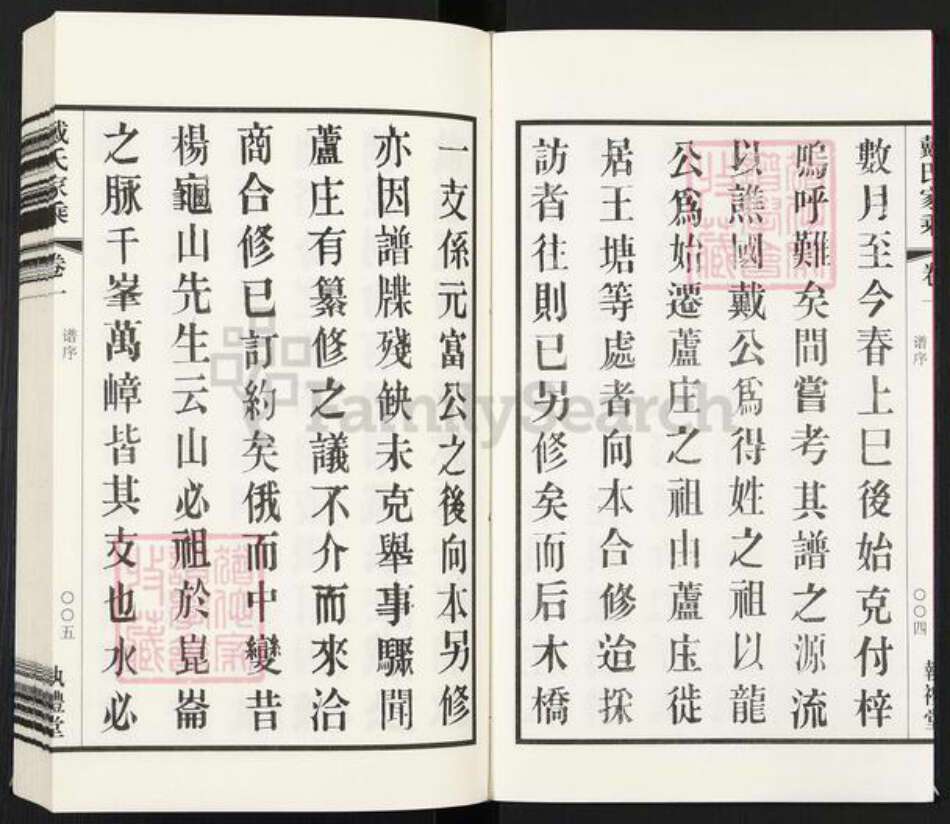 戴氏家乘
卷一
谱序
〇〇四
執禮堂
數月至今春上巳後始克付梓
嗚呼難矣問嘗考其譜之源流
以譙國戴公爲得姓之祖以龍
公爲始遷蘆庄之祖由蘆庄徙
居王塘等處者向本合修迨採
訪者往則已另修矣而后木橋
一支係元富公之後向本另修
亦因譜牒殘缺未克舉事驟聞
蘆庄有纂修之議不介而來洽
商合修已訂約矣俄而中變昔
楊龜山先生云山必祖於崑崙
之脉千峯萬嶂皆其支也水必
戴氏家乘
卷一
谱序
〇〇五
執禮堂
FamilySearch